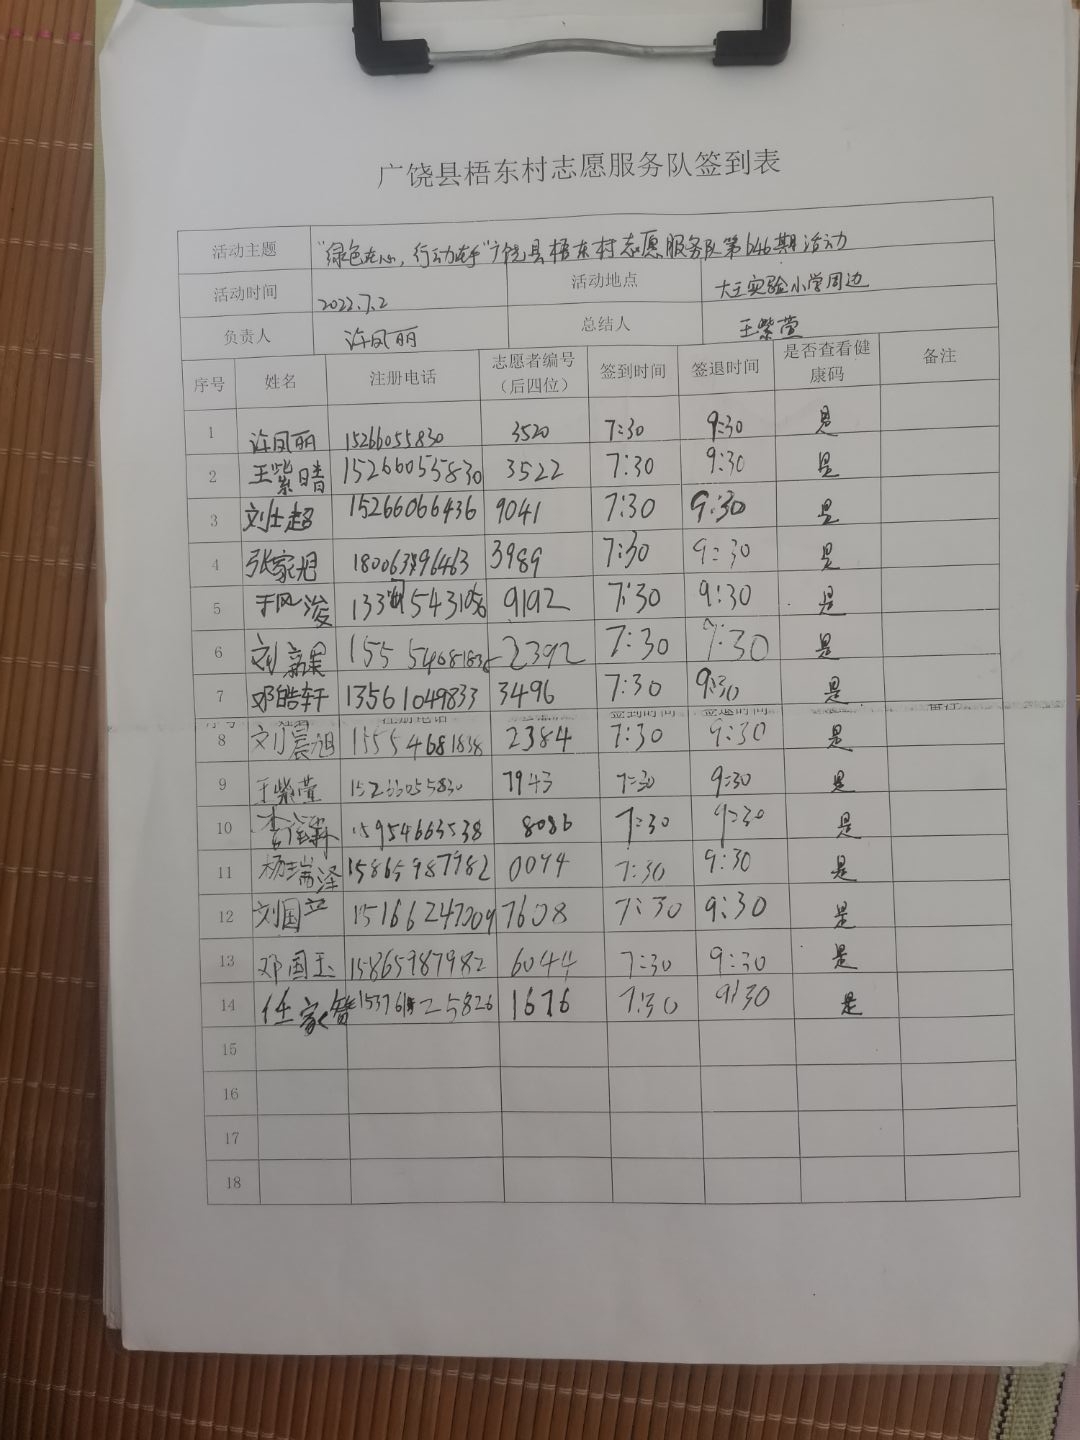 广饶县梧东村志愿服务队签到表
活动主题 "绿色在心，行动在手"广饶县梧东村志愿服务队第646期活动
活动时间 2022.7.2 活动地点 大王实验小学周边
负责人 许凤丽 总结人 王紫萱
序号 姓名 注册电话 志愿者编号（后四位） 签到时间 签退时间 是否查看健康码 备注
1 许凤丽 15266055830 3520 7:30 9:30 是
2 王紫晴 15266055830 3522 7:30 9:30 是
3 刘仕超 15266066436 9041 7:30 9:30 是
4 张家旭 3989 7:30 9:30 是
5 于风浚 9192 7:30 9:30 是
6 刘 2392 7:30 9:30 是
7 邓皓轩 13561049833 3496 7:30 9:30 是
8 刘震旭 15554681838 2384 7:30 9:30 是
9 王紫萱 15266055830 7943 7:30 9:30 是
10 李 15954663538 8086 7:30 9:30 是
11 杨瑞泽 15865987982 0074 7:30 9:30 是
12 刘国立 15166247009 7608 7:30 9:30 是
13 邓国玉 15865987982 6044 7:30 9:30 是
14 任家 1676 7:30 9:30 是
15
16
17
18